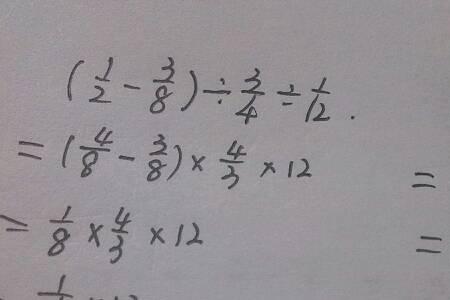 (1/2 - 3/8) ÷ 3/4 ÷ 1/12 .
= (4/8 - 3/8) × 4/3 × 12 =
= 1/8 × 4/3 × 12 =